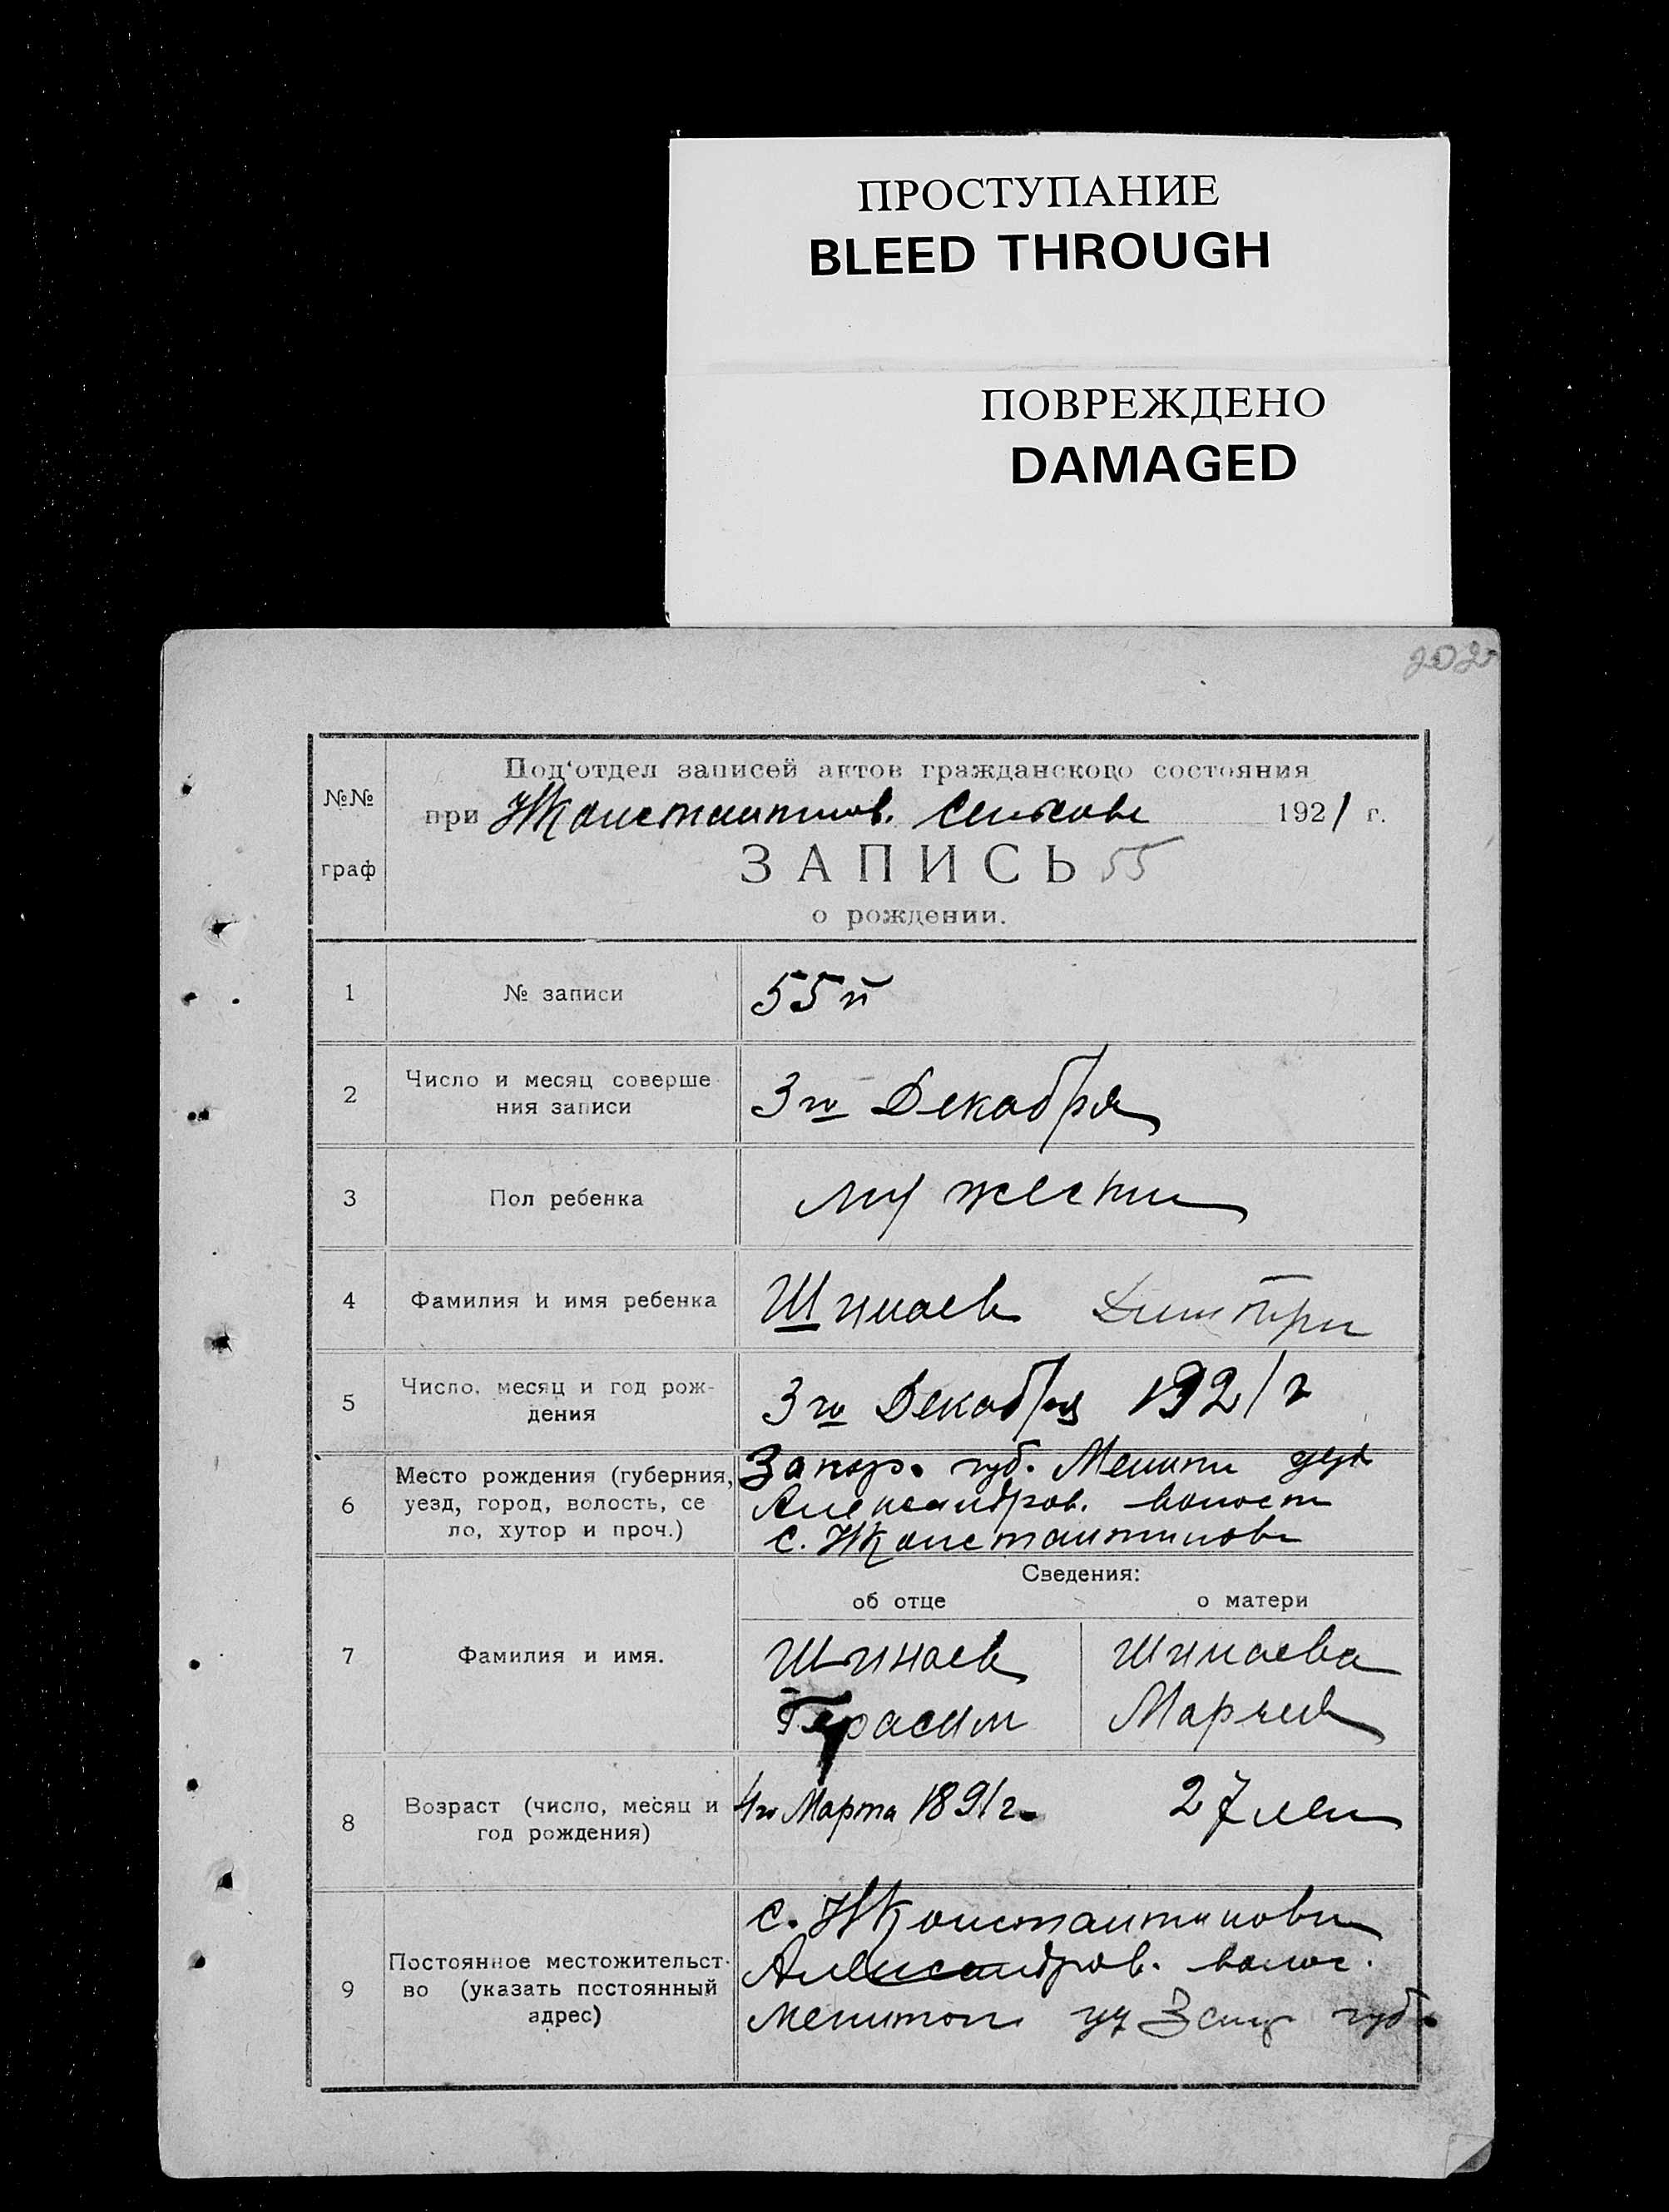 ПРОСТУПАНИЕ
BLEED THROUGH
ПОВРЕЖДЕНО
DAMAGED
202
№№
граф
Под‘отдел записей актов гражданского состояния
при Нконстантинов. сельсове 1921 г.
ЗАПИСЬ 55
о рождении.
1 № записи 55й
2 Число и месяц соверше
ния записи
3го Декабря
3 Пол ребенка мужески
4 Фамилия и имя ребенка Шинаев Дмитри
5 Число, месяц и год рож-
дения
3го Декабря 1921 г
6 Место рождения (губерния,
уезд, город, волость, се
ло, хутор и проч.)
Запор. губ. Мелит уезд
Александров. волости
с. НКонстантиновк
Сведения:
об отце о матери
7 Фамилия и имя.
Шинаев Шинаева
Герасим Мария
8 Возраст (число, месяц и
год рождения)
4го Марта 1891г. 27 лет
9 Постоянное местожительст-
во (указать постоянный
адрес)
с. НКонстантиновк
Александров. волос.
мелитоп уз Зап губ.